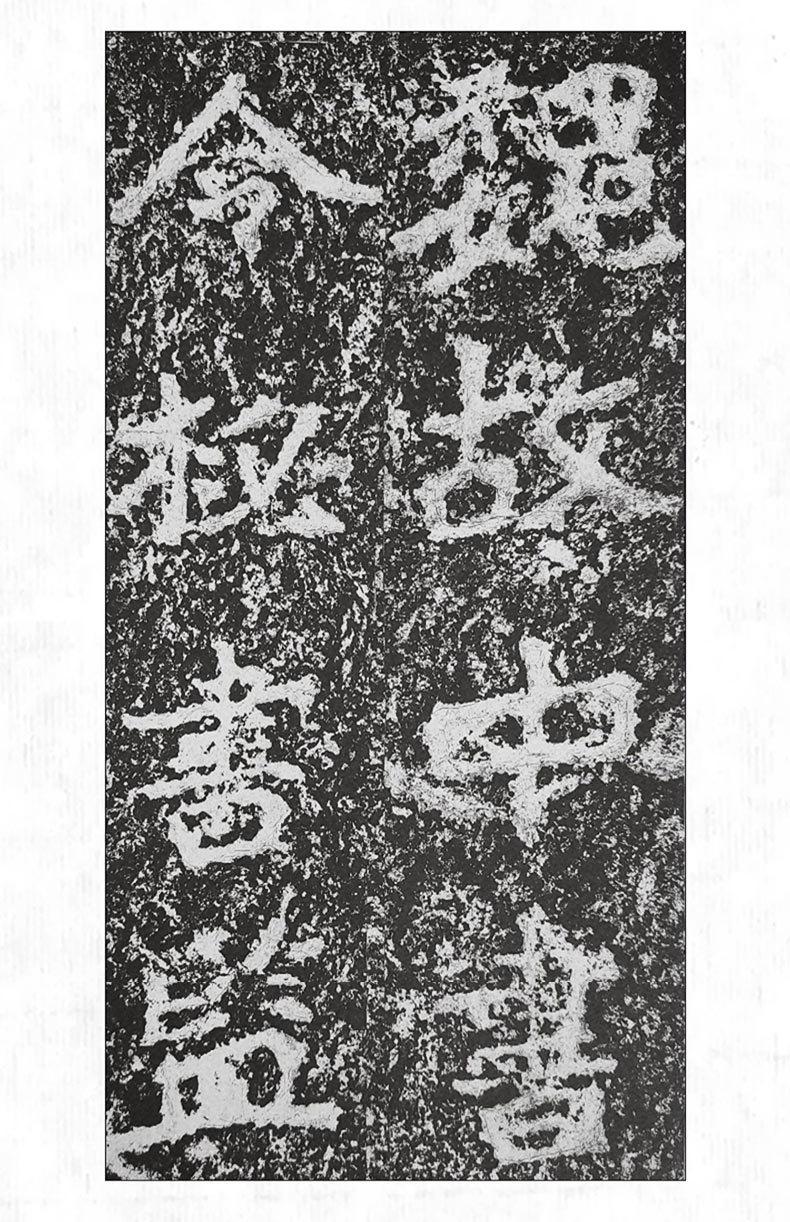 魏故中書
令秘書監